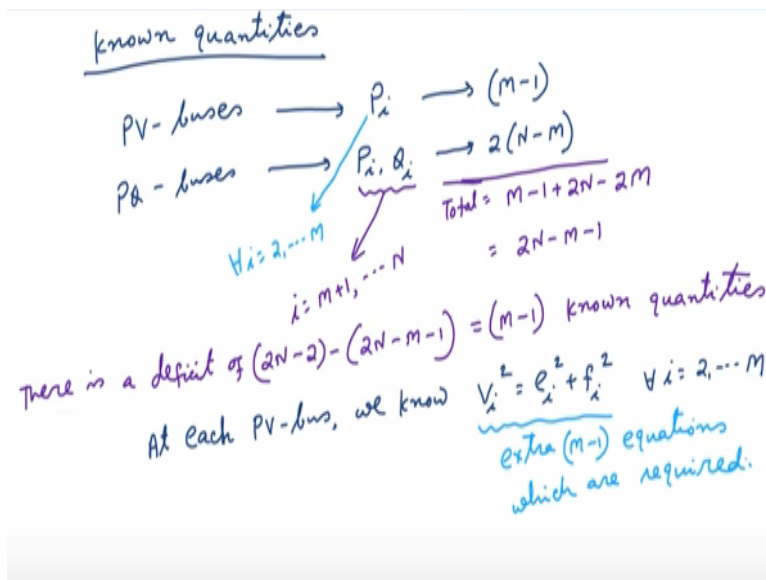 known quantities
PV-buses → Pi → (M-1)
PQ-buses → Pi, Qi → 2(N-M)
Total = M-1+2N-2M
= 2N-M-1
∀i=2,...M
i=M+1,...N
There is a deficit of (2N-2)-(2N-M-1) = (M-1) known quantities
At each PV-bus, we know Vi² = ei² + fi² ∀i=2,...M
extra (M-1) equations
which are required.